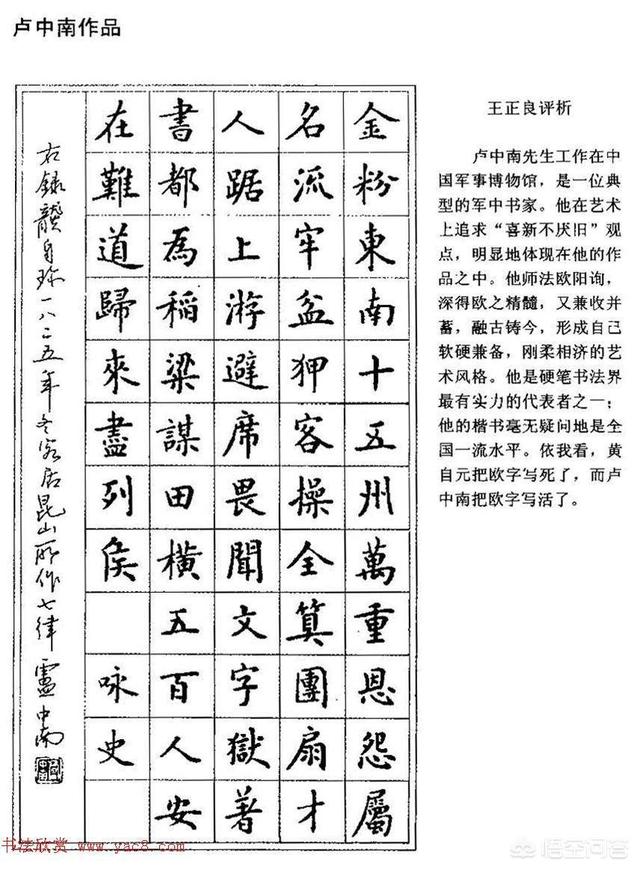 卢中南作品
金粉東南十五州萬重恩怨屬
名流牢盆狎客操全算團扇才
人踞上游避席畏聞文字獄著
書都為稻粱謀田橫五百人安
在難道歸來盡列侯 咏史
右録龔自珍一八二五年冬客居昆山所作七律 盧中南
王正良评析
卢中南先生工作在中
国军事博物馆，是一位典
型的军中书家。他在艺术
上追求“喜新不厌旧”观
点，明显地体现在他的作
品之中。他师法欧阳询，
深得欧之精髓，又兼收并
蓄，融古铸今，形成自己
软硬兼备，刚柔相济的艺
术风格。他是硬笔书法界
最有实力的代表者之一；
他的楷书毫无疑问地是全
国一流水平。依我看，黄
自元把欧字写死了，而卢
中南把欧字写活了。
书法欣赏 www.yac8.com
悟空问答